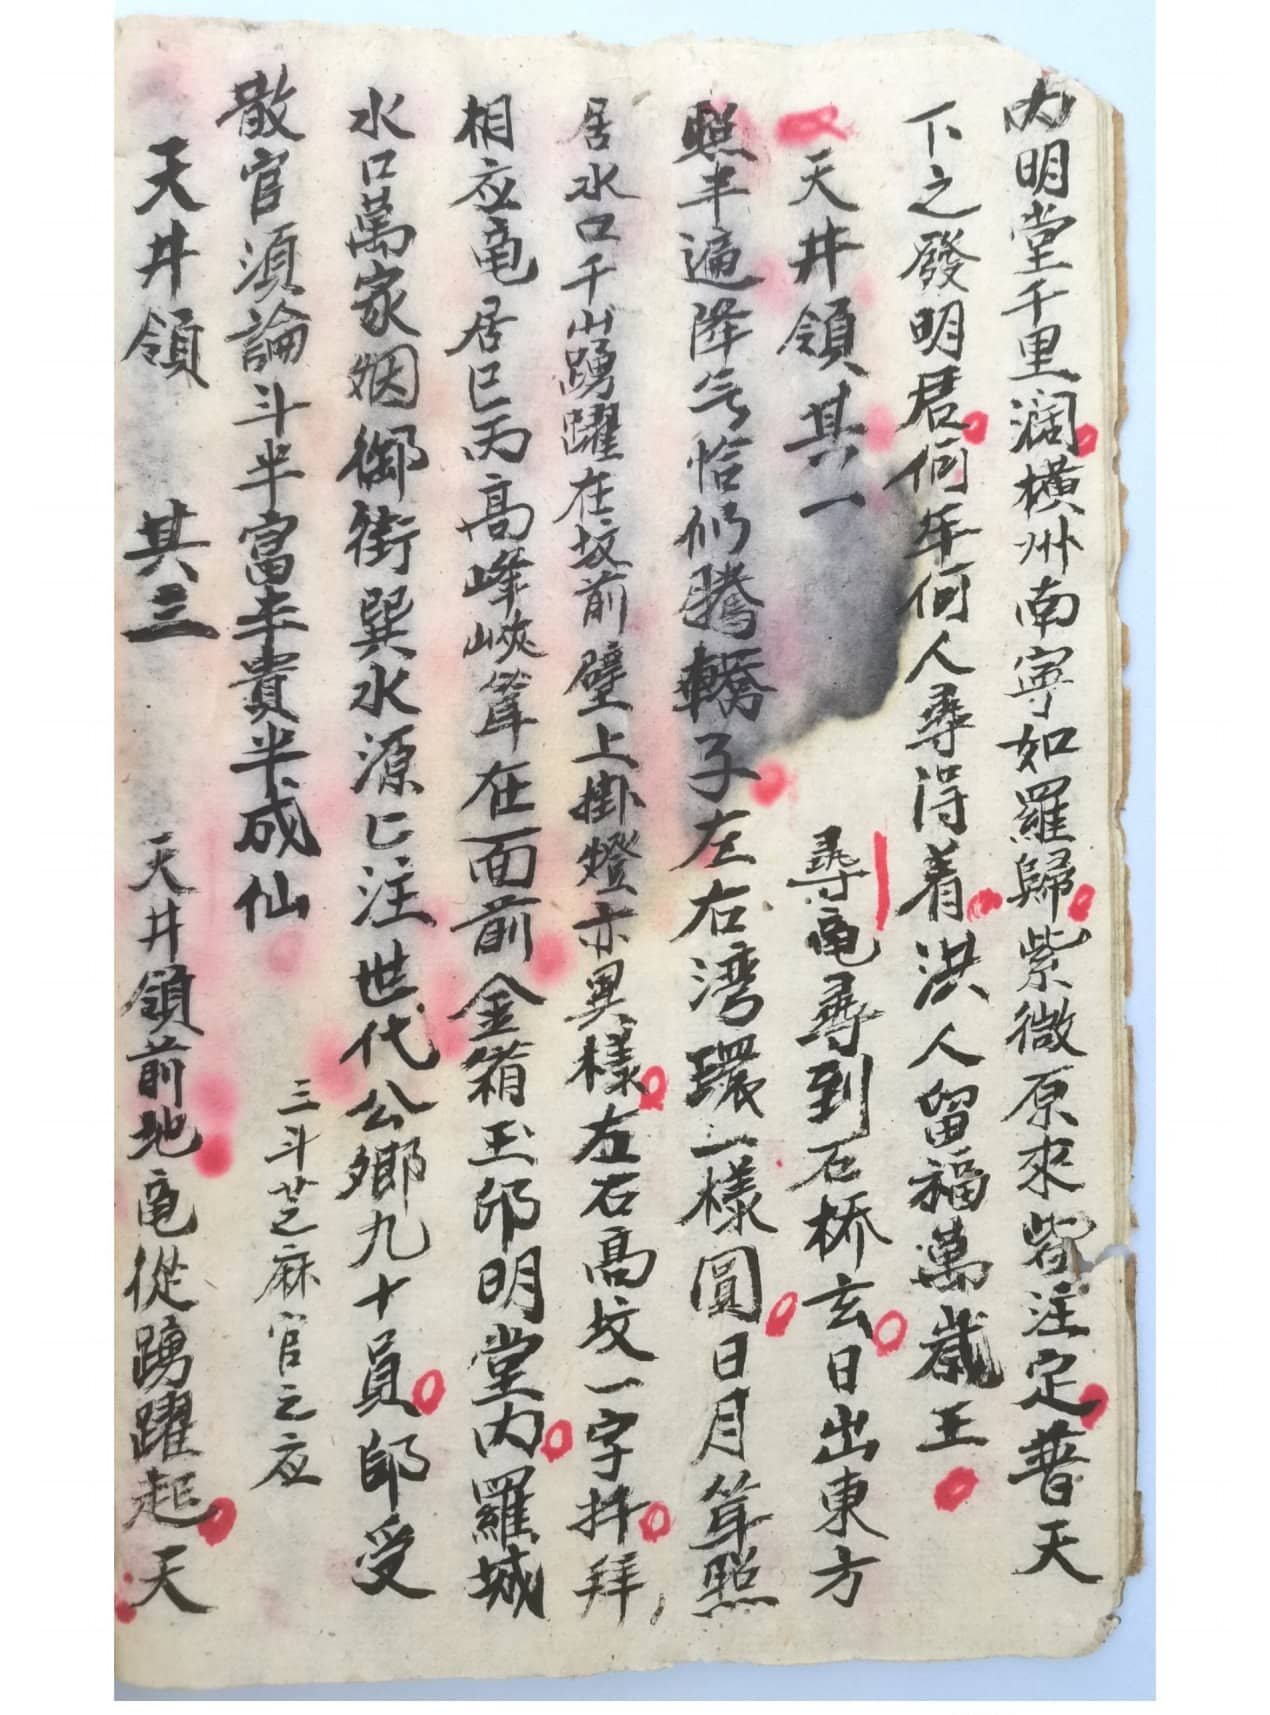 内明堂千里濶橫州南寜如羅歸紫微原來皆注定普天
下之發明君何年何人尋淂着洪人留福萬歲王
天井領其一
尋竜尋到石桥玄日出東方
照半遍降气恰们騰轎子左右湾環一樣圓日月聳照
居水口千山踴躍在坟前壁上掛燈亦異樣左右高坟一字拜拜
相应竜居巳丙高峰峽聳在面前金箱玉印明堂内羅城
水口萬家烟御街巽水源亡注世代公鄉九十員師受
散官須論斗半富半貴半成仙
三斗芝麻官之应
天井領 其三
天井領前地竜從踴躍起天